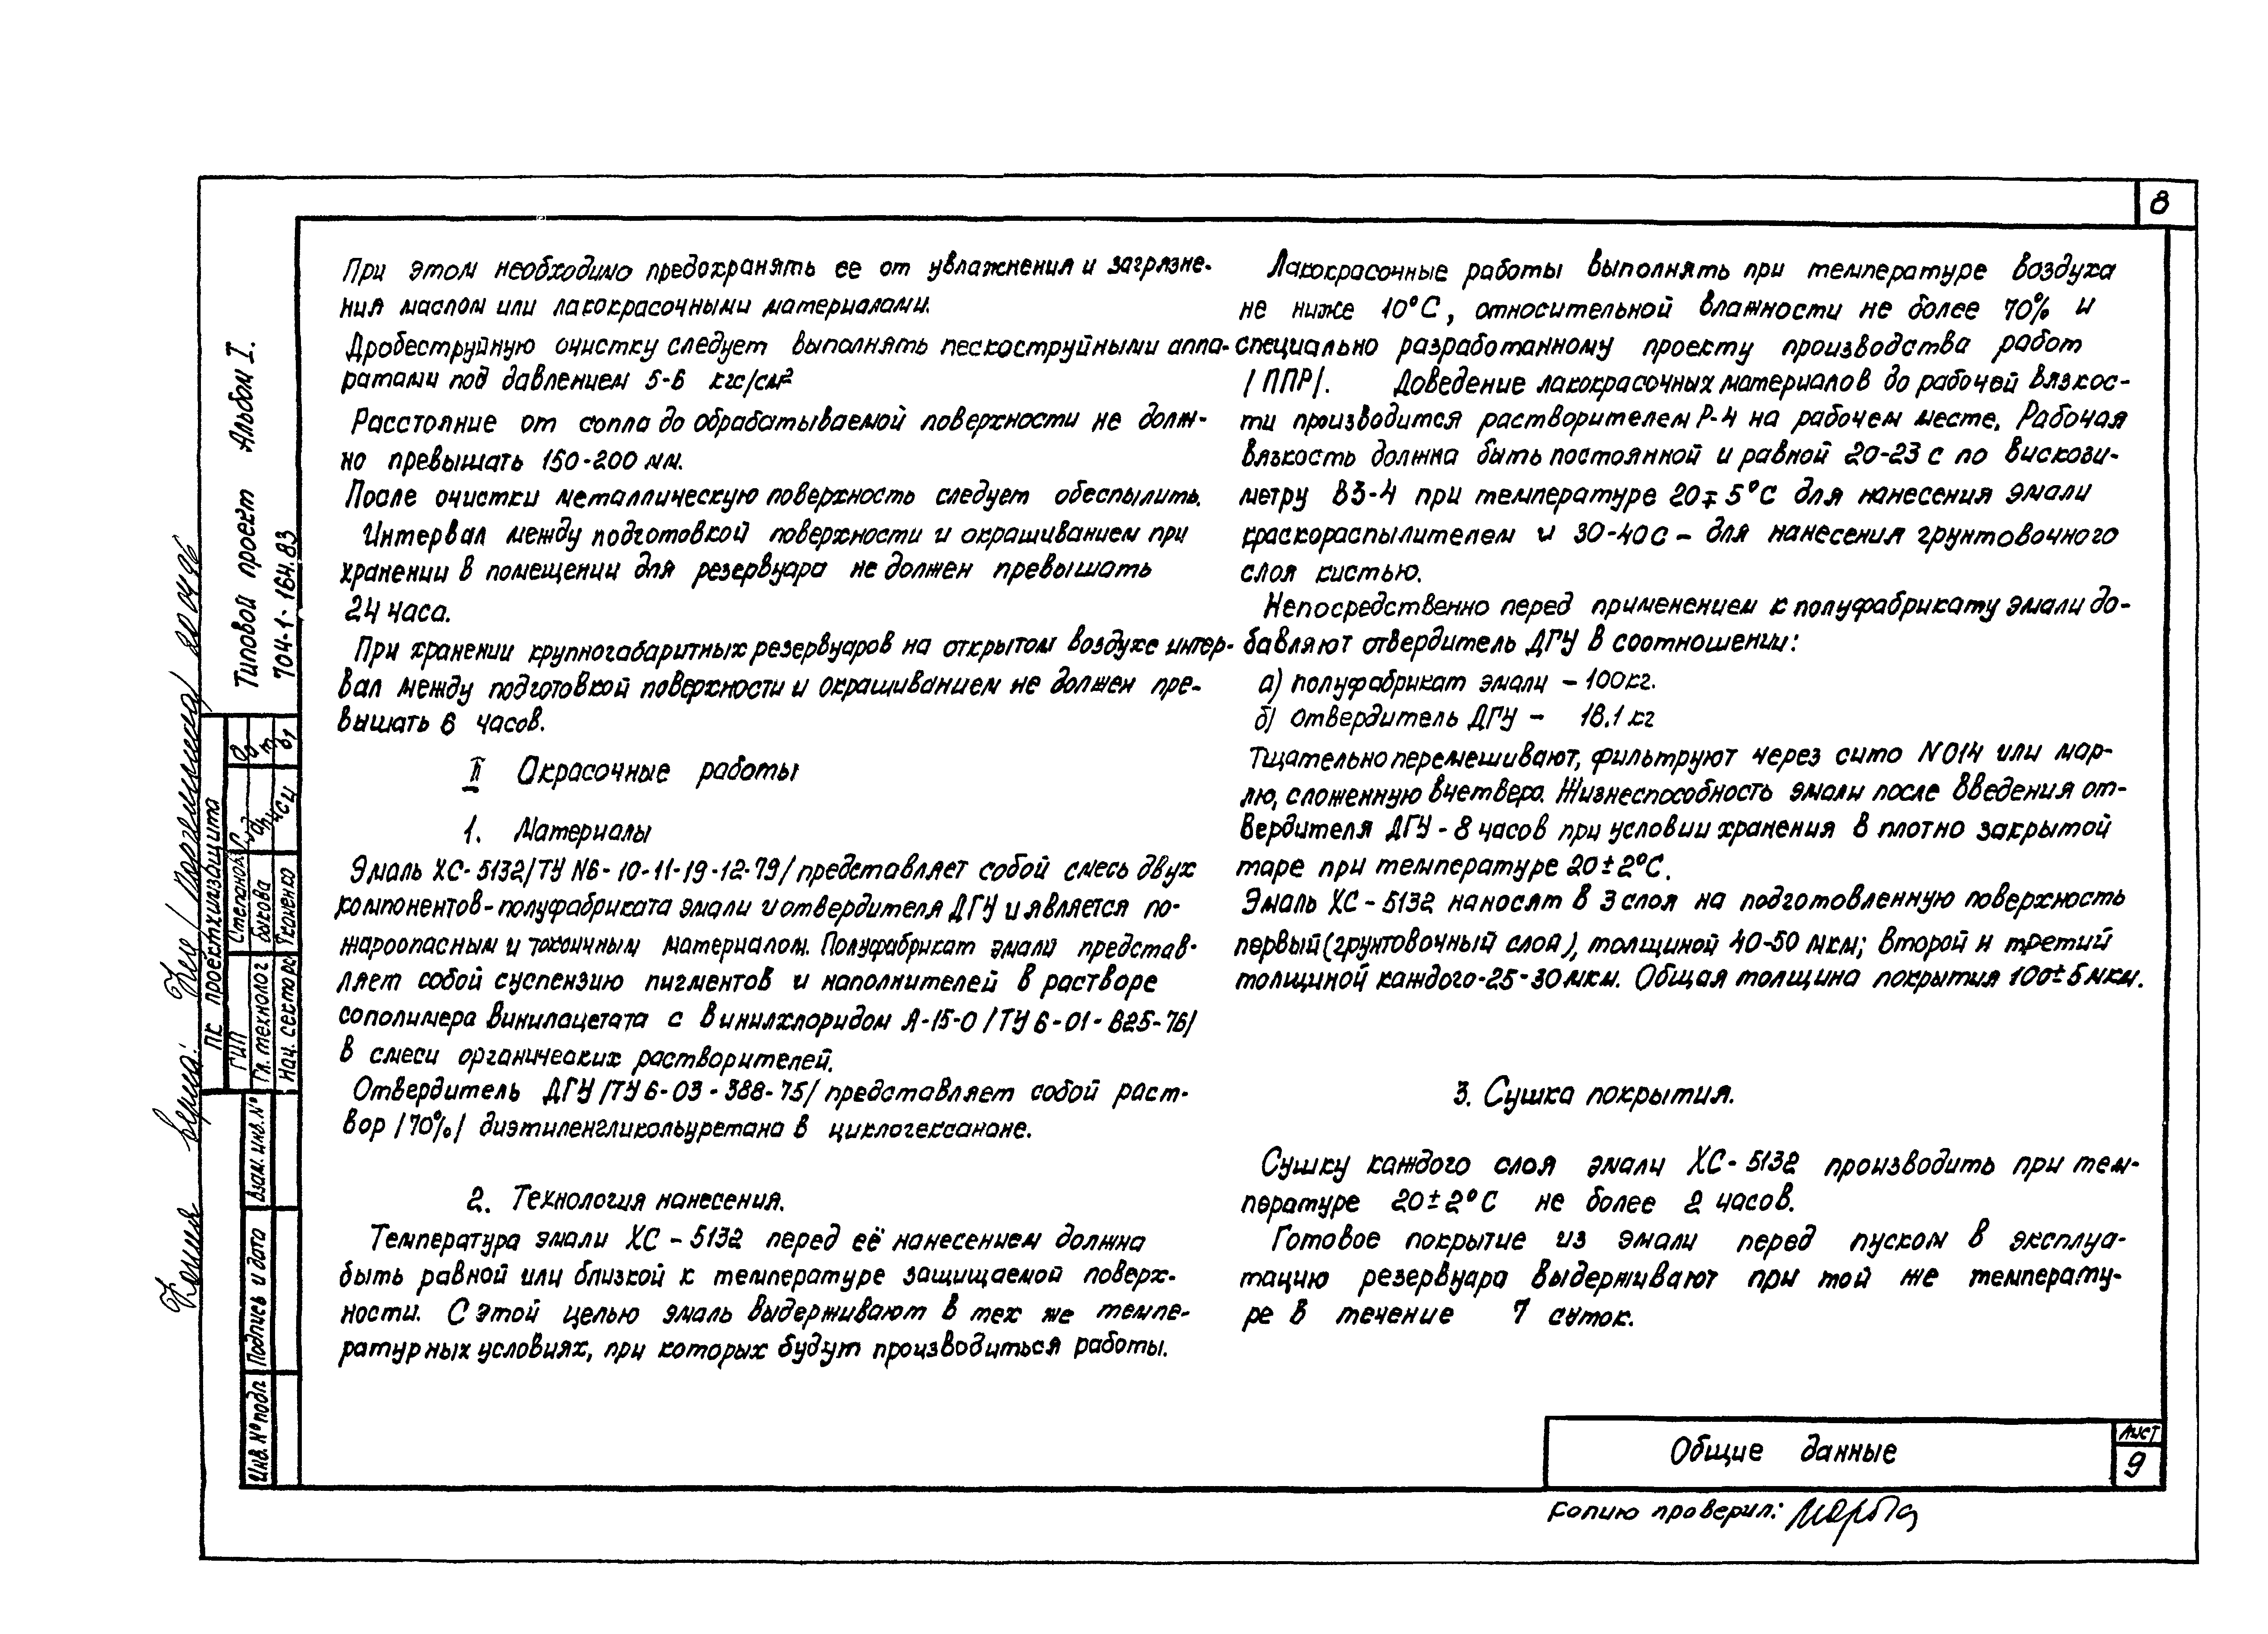 8
При этом необходимо предохранять ее от увлажнения и загрязне-
ния маслом или лакокрасочными материалами.
Дробеструйную очистку следует выполнять пескоструйными аппа-
ратами под давлением 5-6 кгс/см²
Расстояние от сопла до обрабатываемой поверхности не долж-
но превышать 150-200 мм.
После очистки металлическую поверхность следует обеспылить.
Интервал между подготовкой поверхности и окрашиванием при
хранении в помещении для резервуара не должен превышать
24 часа.
При хранении крупногабаритных резервуаров на открытом воздухе интер-
вал между подготовкой поверхности и окрашиванием не должен пре-
вышать 6 часов.
II Окрасочные работы
1. Материалы
Эмаль ХС-5132/ТУ №6-10-11-19-12-79/ представляет собой смесь двух
компонентов-полуфабриката эмали и отвердителя ДГУ и является по-
жароопасным и токсичным материалом. Полуфабрикат эмали представ-
ляет собой суспензию пигментов и наполнителей в растворе
сополимера винилацетата с винилхлоридом А-15-0 /ТУ 6-01-825-76/
в смеси органических растворителей.
Отвердитель ДГУ /ТУ 6-03-388-75/ представляет собой раст-
вор /70%/ диэтиленгликольуретана в циклогексанане.
2. Технология нанесения.
Температура эмали ХС-5132 перед её нанесением должна
быть равной или близкой к температуре защищаемой поверх-
ности. С этой целью эмаль выдерживают в тех же темпе-
ратурных условиях, при которых будут производиться работы.
Лакокрасочные работы выполнять при температуре воздуха
не ниже 10°С, относительной влажности не более 70% и
специально разработанному проекту производства работ
/ППР/. Доведение лакокрасочных материалов до рабочей вязкос-
ти производится растворителем Р-4 на рабочем месте. Рабочая
вязкость должна быть постоянной и равной 20-23 с по вискози-
метру ВЗ-4 при температуре 20∓5°С для нанесения эмали
краскораспылителем и 30-40с – для нанесения грунтовочного
слоя кистью.
Непосредственно перед применением к полуфабрикату эмали до-
бавляют отвердитель ДГУ в соотношении:
а) полуфабрикат эмали – 100кг.
б) отвердитель ДГУ – 18.1 кг
Тщательно перемешивают, фильтруют через сито N014 или мар-
лю, сложенную вчетверо. Жизнеспособность эмали после введения от-
вердителя ДГУ - 8 часов при условии хранения в плотно закрытой
таре при температуре 20±2°С.
Эмаль ХС-5132 наносят в 3 слоя на подготовленную поверхность
первый (грунтовочный слой), толщиной 40-50 мкм; второй и третий
толщиной каждого-25-30мкм. Общая толщина покрытия 100±5мкм.
3. Сушка покрытия.
Сушку каждого слоя эмали ХС-5132 производить при тем-
пературе 20±2°С не более 2 часов.
Готовое покрытие из эмали перед пуском в эксплуа-
тацию резервуара выдерживают при той же температу-
ре в течение 7 суток.
Общие данные
Лист
9
Копию проверил:
Типовой проект Альбом I.
704-1-164.83
ПК проектхимзащита
ГИП Степанок
Гл. технолог Быкова
Нач. сектора Ткаченко
Взам. инв. №
Подпись и дата
Инв. № подл
Копия верна: